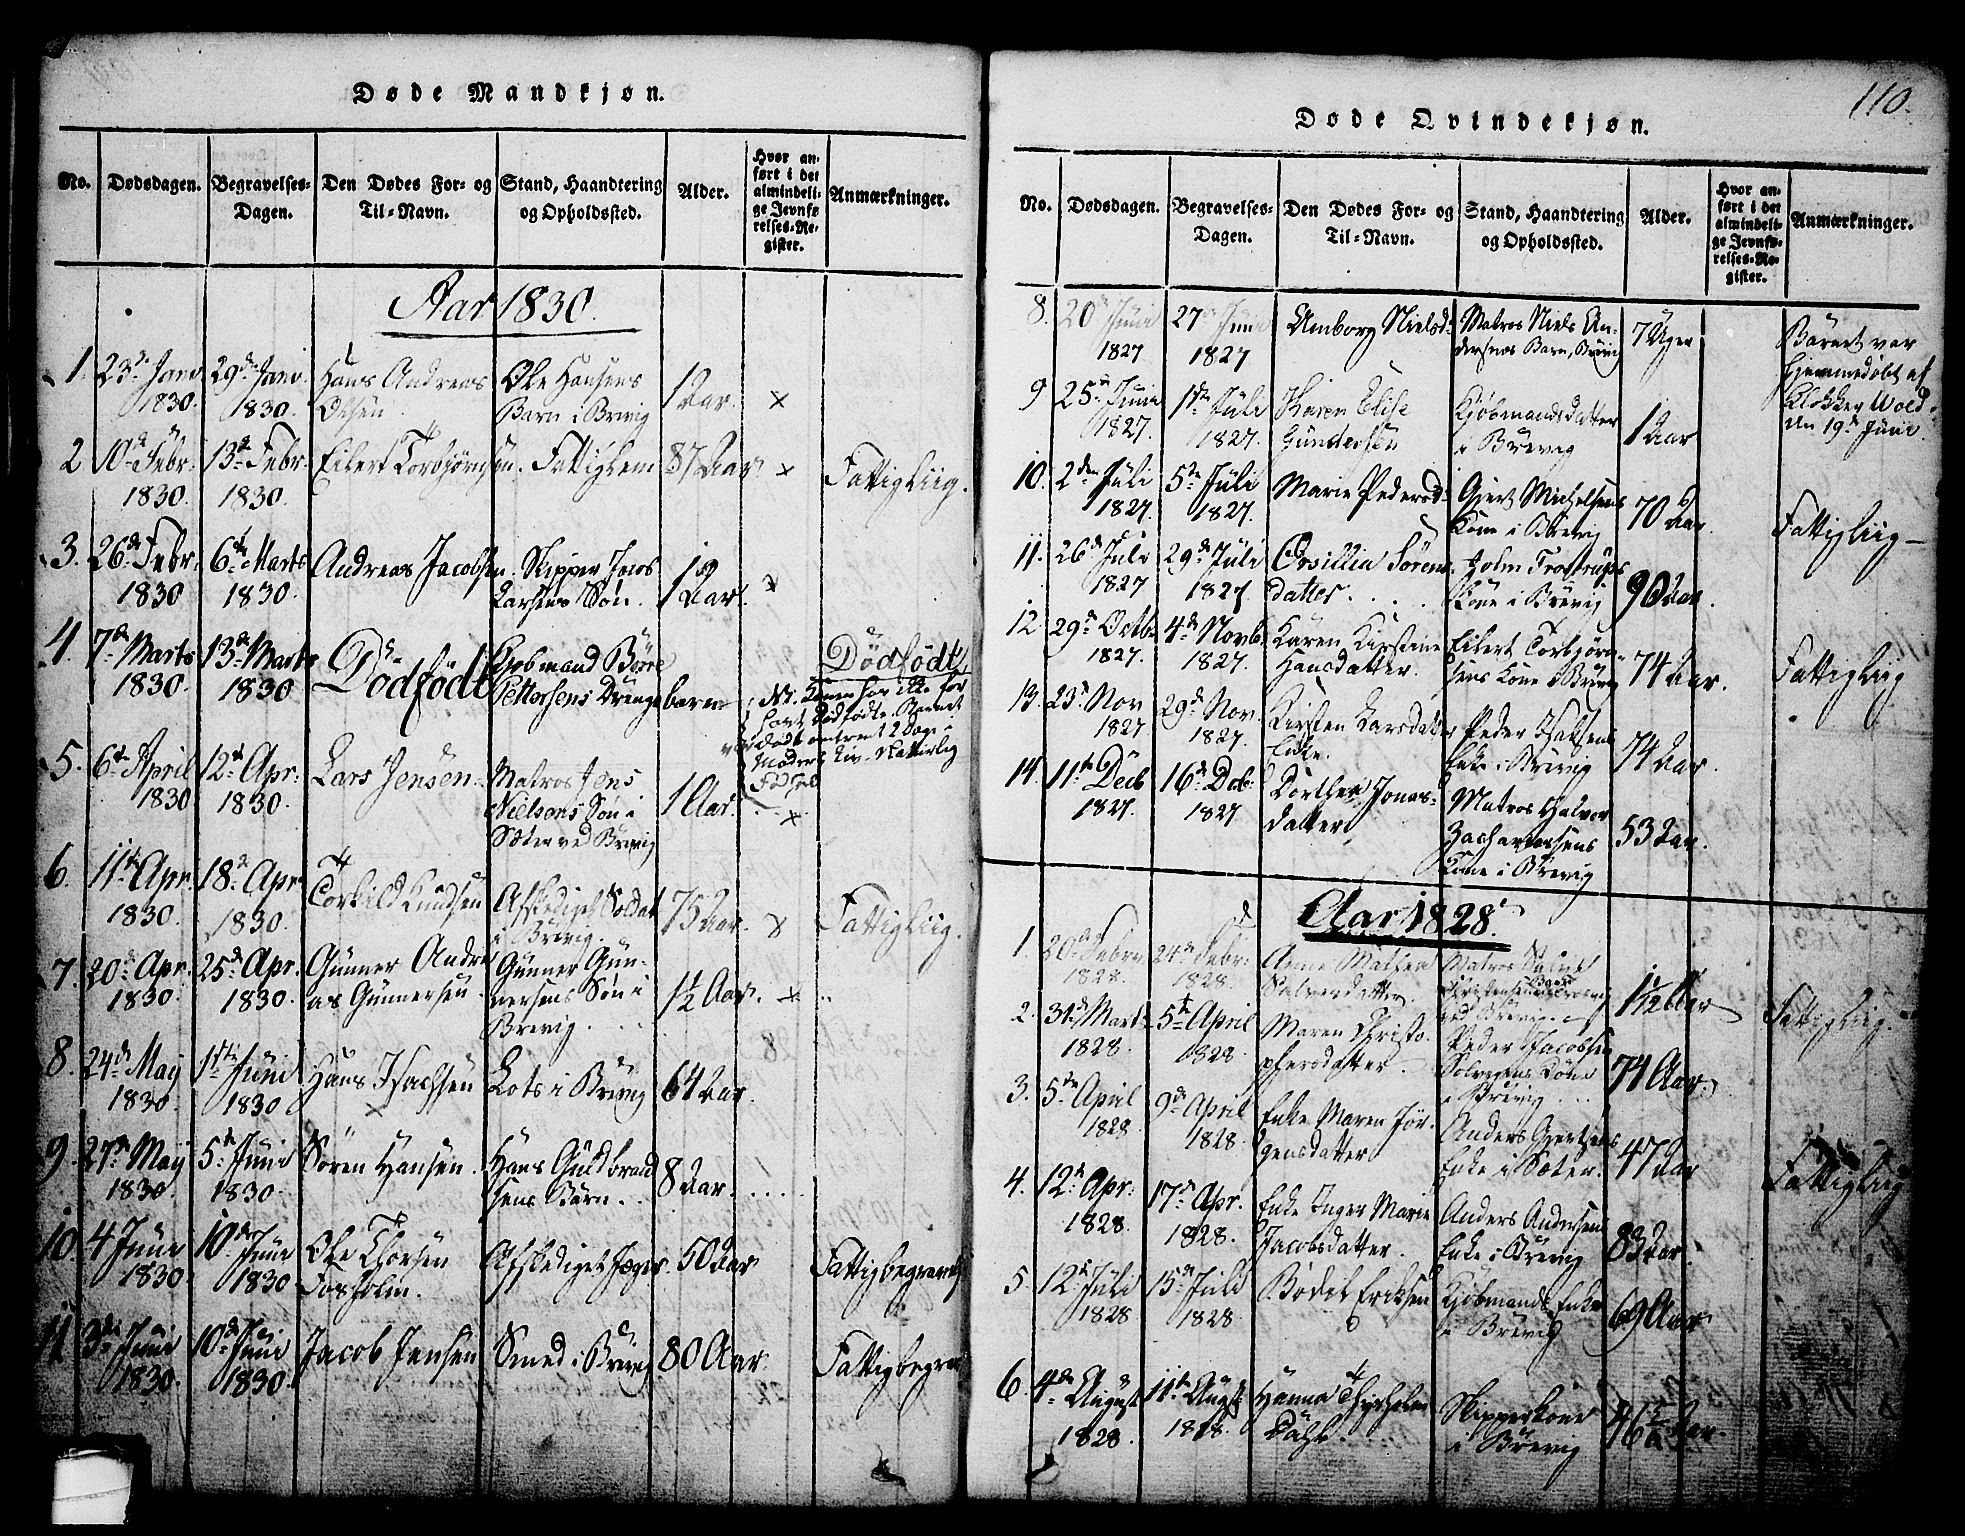 Døde Mandkjøn.
No. Dødsdagen. Begravelses-Dagen. Den Dødes For- og Til-Navn. Stand, Haandtering og Opholdssted. Alder. Hvor anført i det almindelige Jevnførelses-Register. Anmærkninger.
Aar 1830.
1. 23de Janv 1830. 29de Janv. 1830. Hans Andreas Olsen. Ole Hansens Barn i Brevig 1 Aar. x
2 10de Febr. 1830. 13de Febr. 1830. Eilert Torbjørnsen. Fattiglem 87 Aar x Fattigliig.
3. 26de Febr. 1830 6te Marts 1830. Andreas Jacobsen. Skipper Jacob Larsens Søn. 1 Aar. x
4. 7de Marts 1830. 13de Marts 1830 Dödfödt Kjøbmand Börre Pettersens Drengebarn Dödfödt
NB. Konen har ikke før havt Dødfødte. Barnet var dødt omtrent 2 Dage i Moders Liv. Naturlig
5. 6te April 1830 12te Apr: 1830. Lars Jensen. Matros Jens Nielsens Søn i Sæter ved Brevig 1 Aar. x
6. 11te Apr. 1830. 18de Apr 1830. Torkild Knudsen Afskediget Soldat i Brevig. 75 Aar. x Fattigliig.
7. 20de Apr. 1830. 25de Apr. 1830. Gunner Andreas Gunnersen. Gunner Gunnersens Søn i Brevig. 1½ Aar. x
8. 24de May 1830. 1ste Juni 1830 Hans Isachsen x Lots i Brevig 64 Aar.
9. 27de May 1830. 5te Juni 1830. Sören Hansen. Hans Guldbrandsens Barn. 8 Aar.
10. 4 Juni 1830. 10de Juni 1830 Ole Thorsen Fosholm. Afskediget Jæger. 50 Aar Fattigbegravels
11 3die Juni 1830. 10de Juni 1830. Jacob Jensen Smed i Brevig 80 Aar. Fattigbegrav
110.
Døde Qvindekjøn.
No. Dødsdagen. Begravelses-Dagen. Den Dødes For- og Til-Navn. Stand, Haandtering og Opholdssted. Alder. Hvor anført i det almindelige Jevnførelses-Register. Anmærkninger.
8. 20de Juni 1827 27de Juni 1827 Amborg Nielsd: Matros Niels Andersens Barn, Brevig 7 Uger Barnet var hjemmedøbt af Klokker Wold den 19de Juni
9 25de Juni 1827. 1ste Juli 1827. Karen Elise Gundersen Kjøbmandsdatter i Brevig 1 Aar
10. 2den Juli 1827. 5te Juli 1827. Marie Pedersd: Gjert Michelsens Kone i Brevig 70 Aar. Fattigliig
11. 26de Juli 1827 29de Juli 1827 Orsillia Sørensdatter. Holm Frostrups Kone i Brevig 90 Aar.
12. 29de Octb. 1827. 4de Novb. 1827. Karen Kirstine Hansdatter. Eilert Torbjørnsens Kone i Brevig 74 Aar. Fattigliig
13. 23de Nov 1827 29de Nov. 1827. Kirsten Larsdatter Enke. Peder Isaksens Enke i Brevig 74 Aar.
14. 11te Decb 1827. 16de Decb. 1827 Dorthea Jonasdatter Matros Halvor Zachariassens Kone i Brevig 53 Aar.
Aar 1828.
1. 20de Febr 1828. 24de Febr. 1828. Anne Mathea Salvesdatter. Matros Salve Christensens Barn ved Brevig. 1 1/12 Aar Fattigliig.
2. 31te Mart. 1828. 5te April 1828 Maren Christophersdatter. Peder Jacobsen Kone i Brevig 74 Aar.
3. 5te April 1828 9de April 1828. Enke Maren Jørgensdatter Anders Gjertsens Enke i Sæter. 47 Aar Fattigliig
4. 12te Apr: 1828. 17de Apr. 1828. Enke Inger Marie Jacobsdatter. Anders Andersens Enke i Brevig 83 Aar.
5. 12te Juli 1828 15de Juli 1828. Bodil Eriksen Kjøbmands Enke i Brevig 69 Aar
6. 4de August 1828. 11te August 1828. Hanna Thyrholm Dahl. Skipperkone i Brevig 46 Aar.